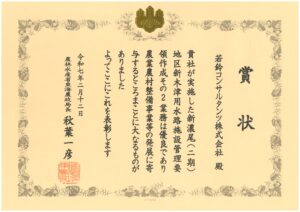 賞状
若鈴コンサルタンツ株式会社 殿
貴社が実施した新濃尾(二期)
地区新木津用水路施設管理要
領作成その2業務は優良であり
農業農村整備事業等の発展に寄
与するところまことに大なるものが
ありました
よってここにこれを表彰します
令和七年二月十二日
農林水産省東海農政局長 秋葉一彦